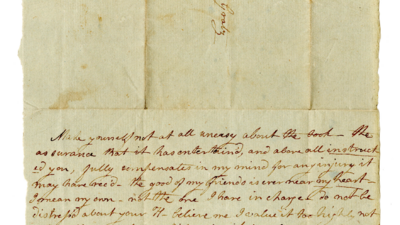 Make yourself not at all uneasy about the book — the
assurance that it has entertained, and above all instruct
ed you, fully compensates in my mind for any injury it
may have rec'd — the good of my friends is ever near my heart —
I mean my own — not the one I have in charge. Do not be
distressed about your — believe me I value it too highly not